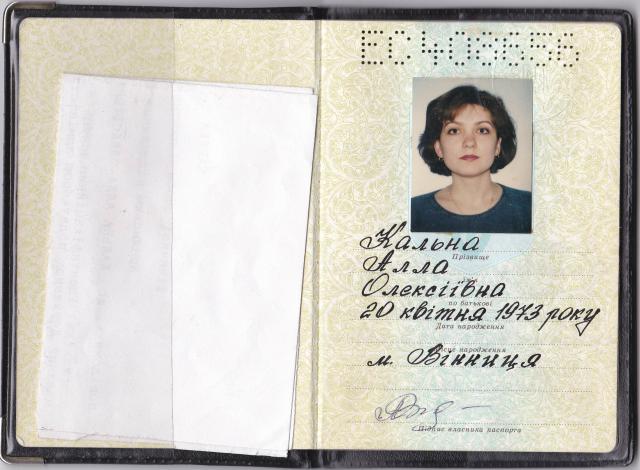 ЕС 406656
Кальна
Прізвище
Алла
Олексіївна
по батькові
20 квітня 1973 року
Дата народження
Місце народження
м. Вінниця
Підпис власника паспорта